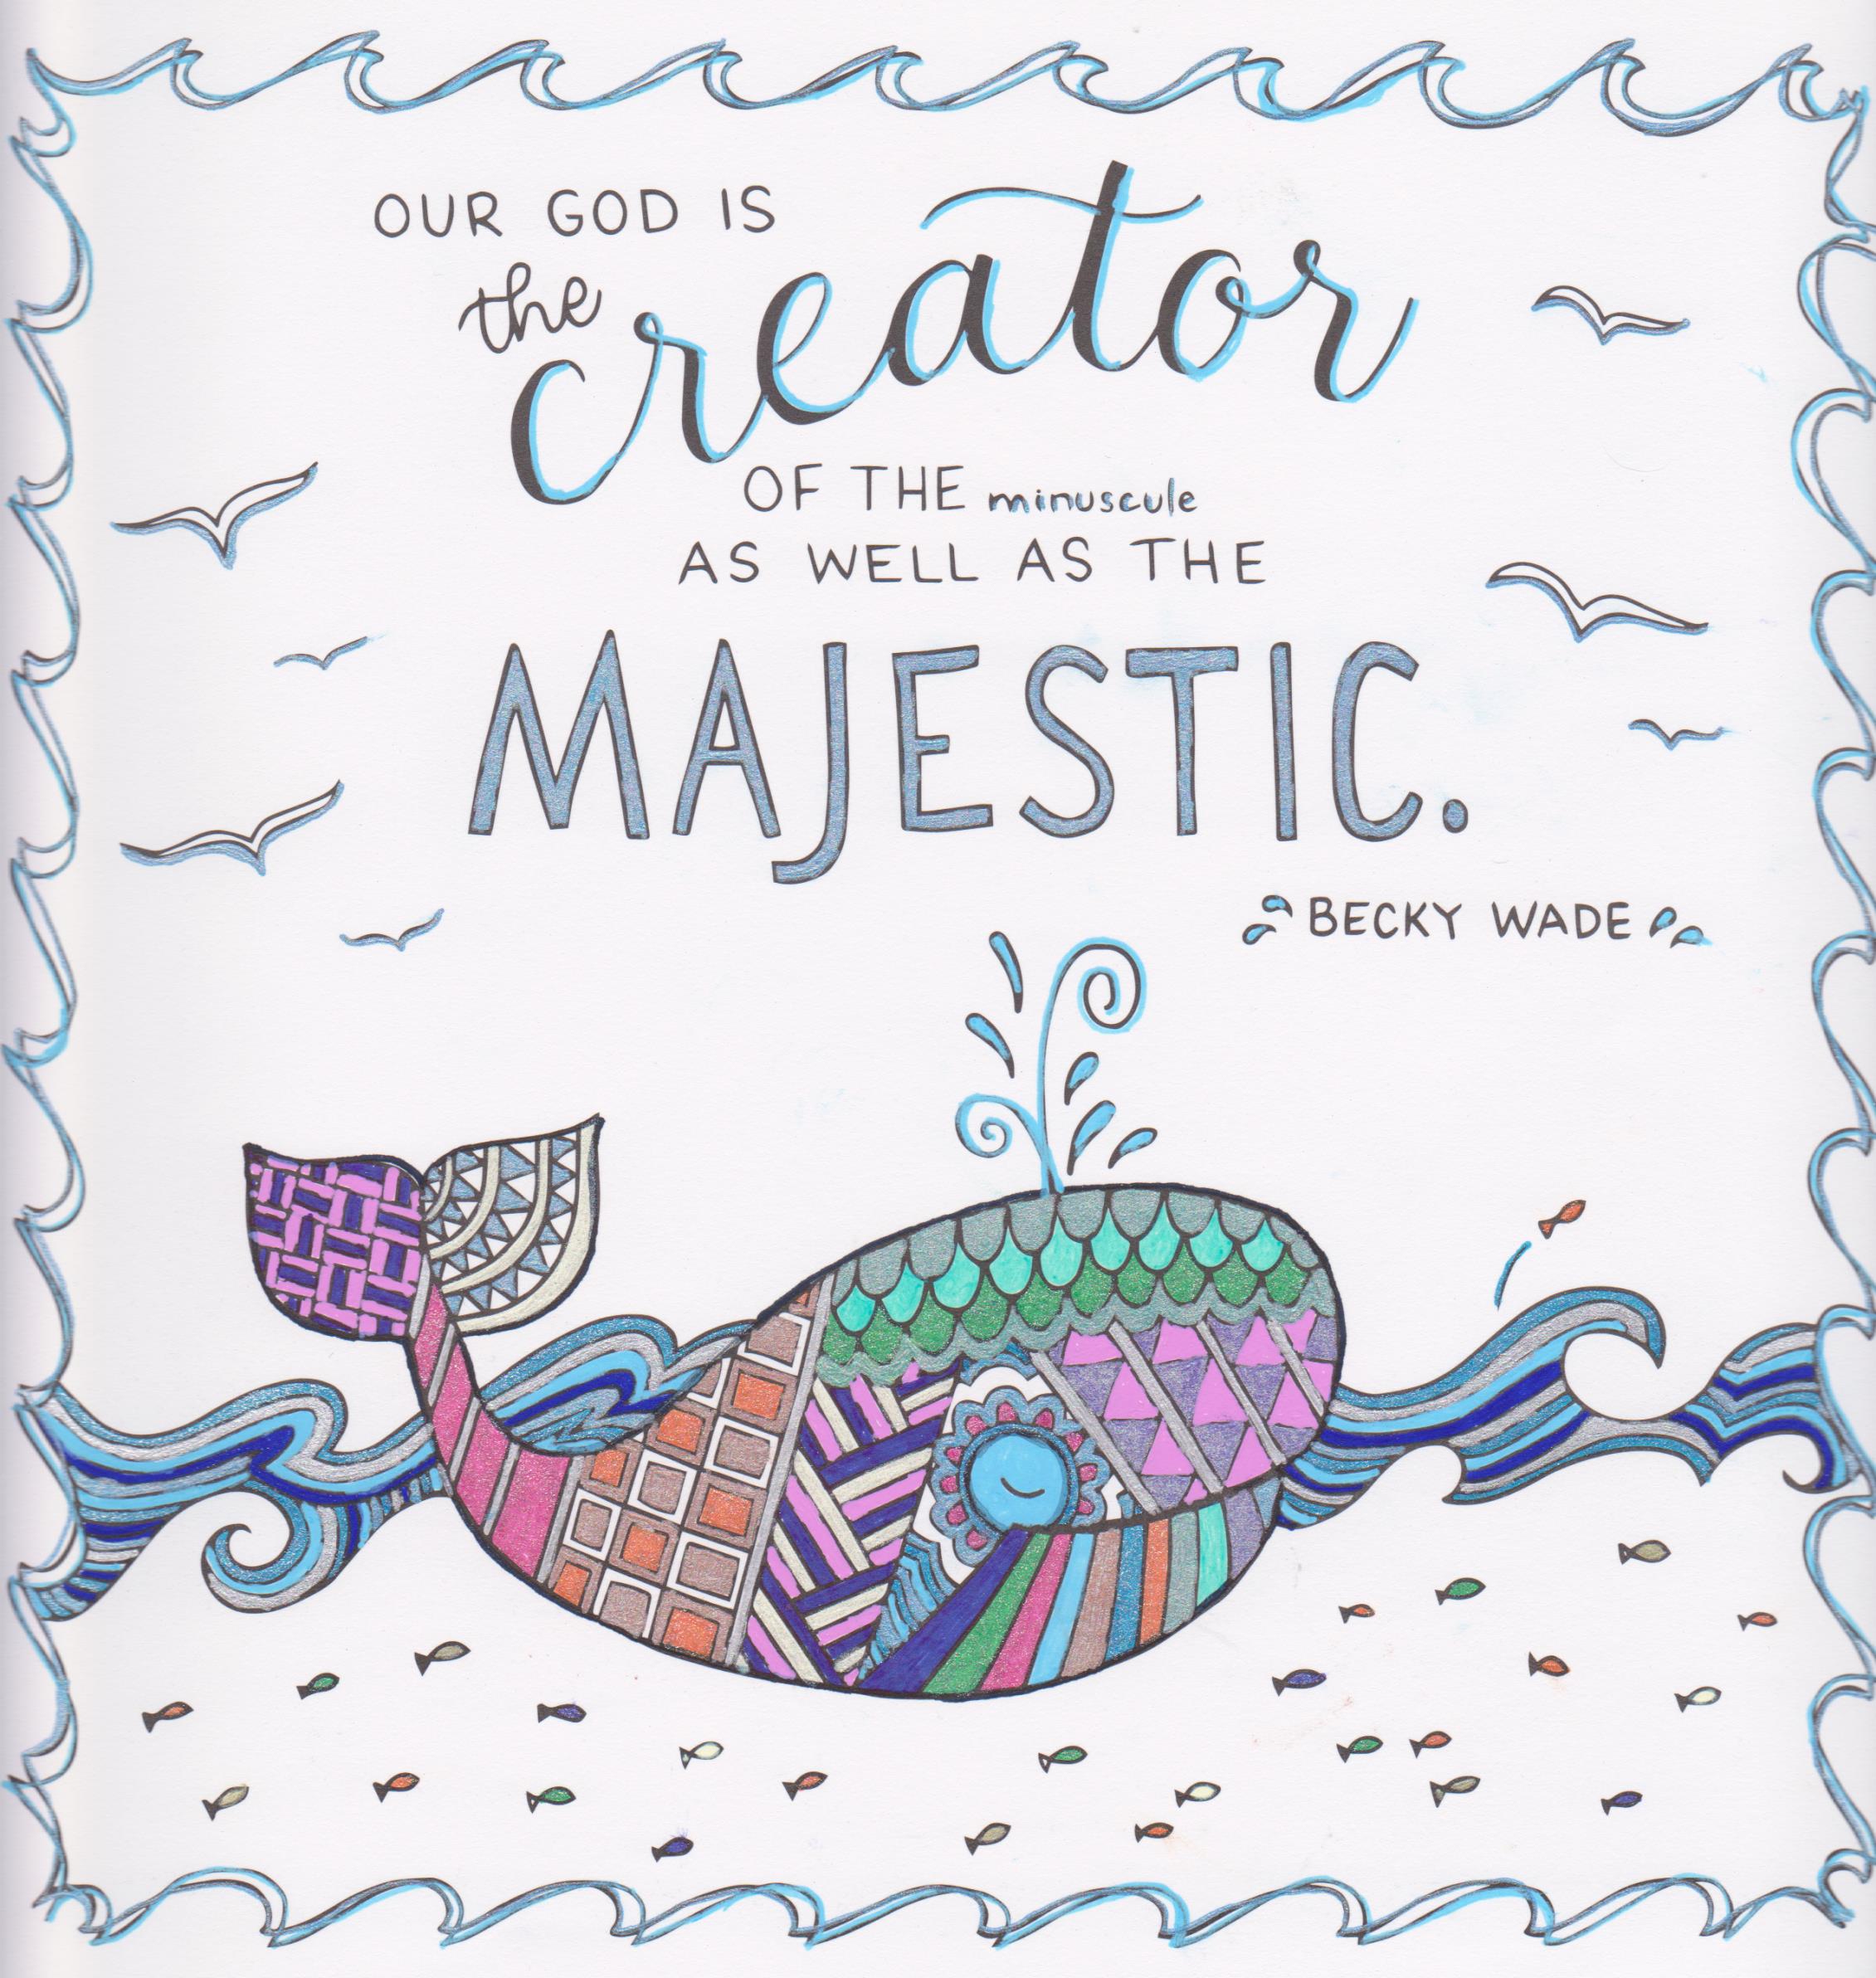 OUR GOD IS
the creator
OF THE minuscule
AS WELL AS THE
MAJESTIC.
BECKY WADE